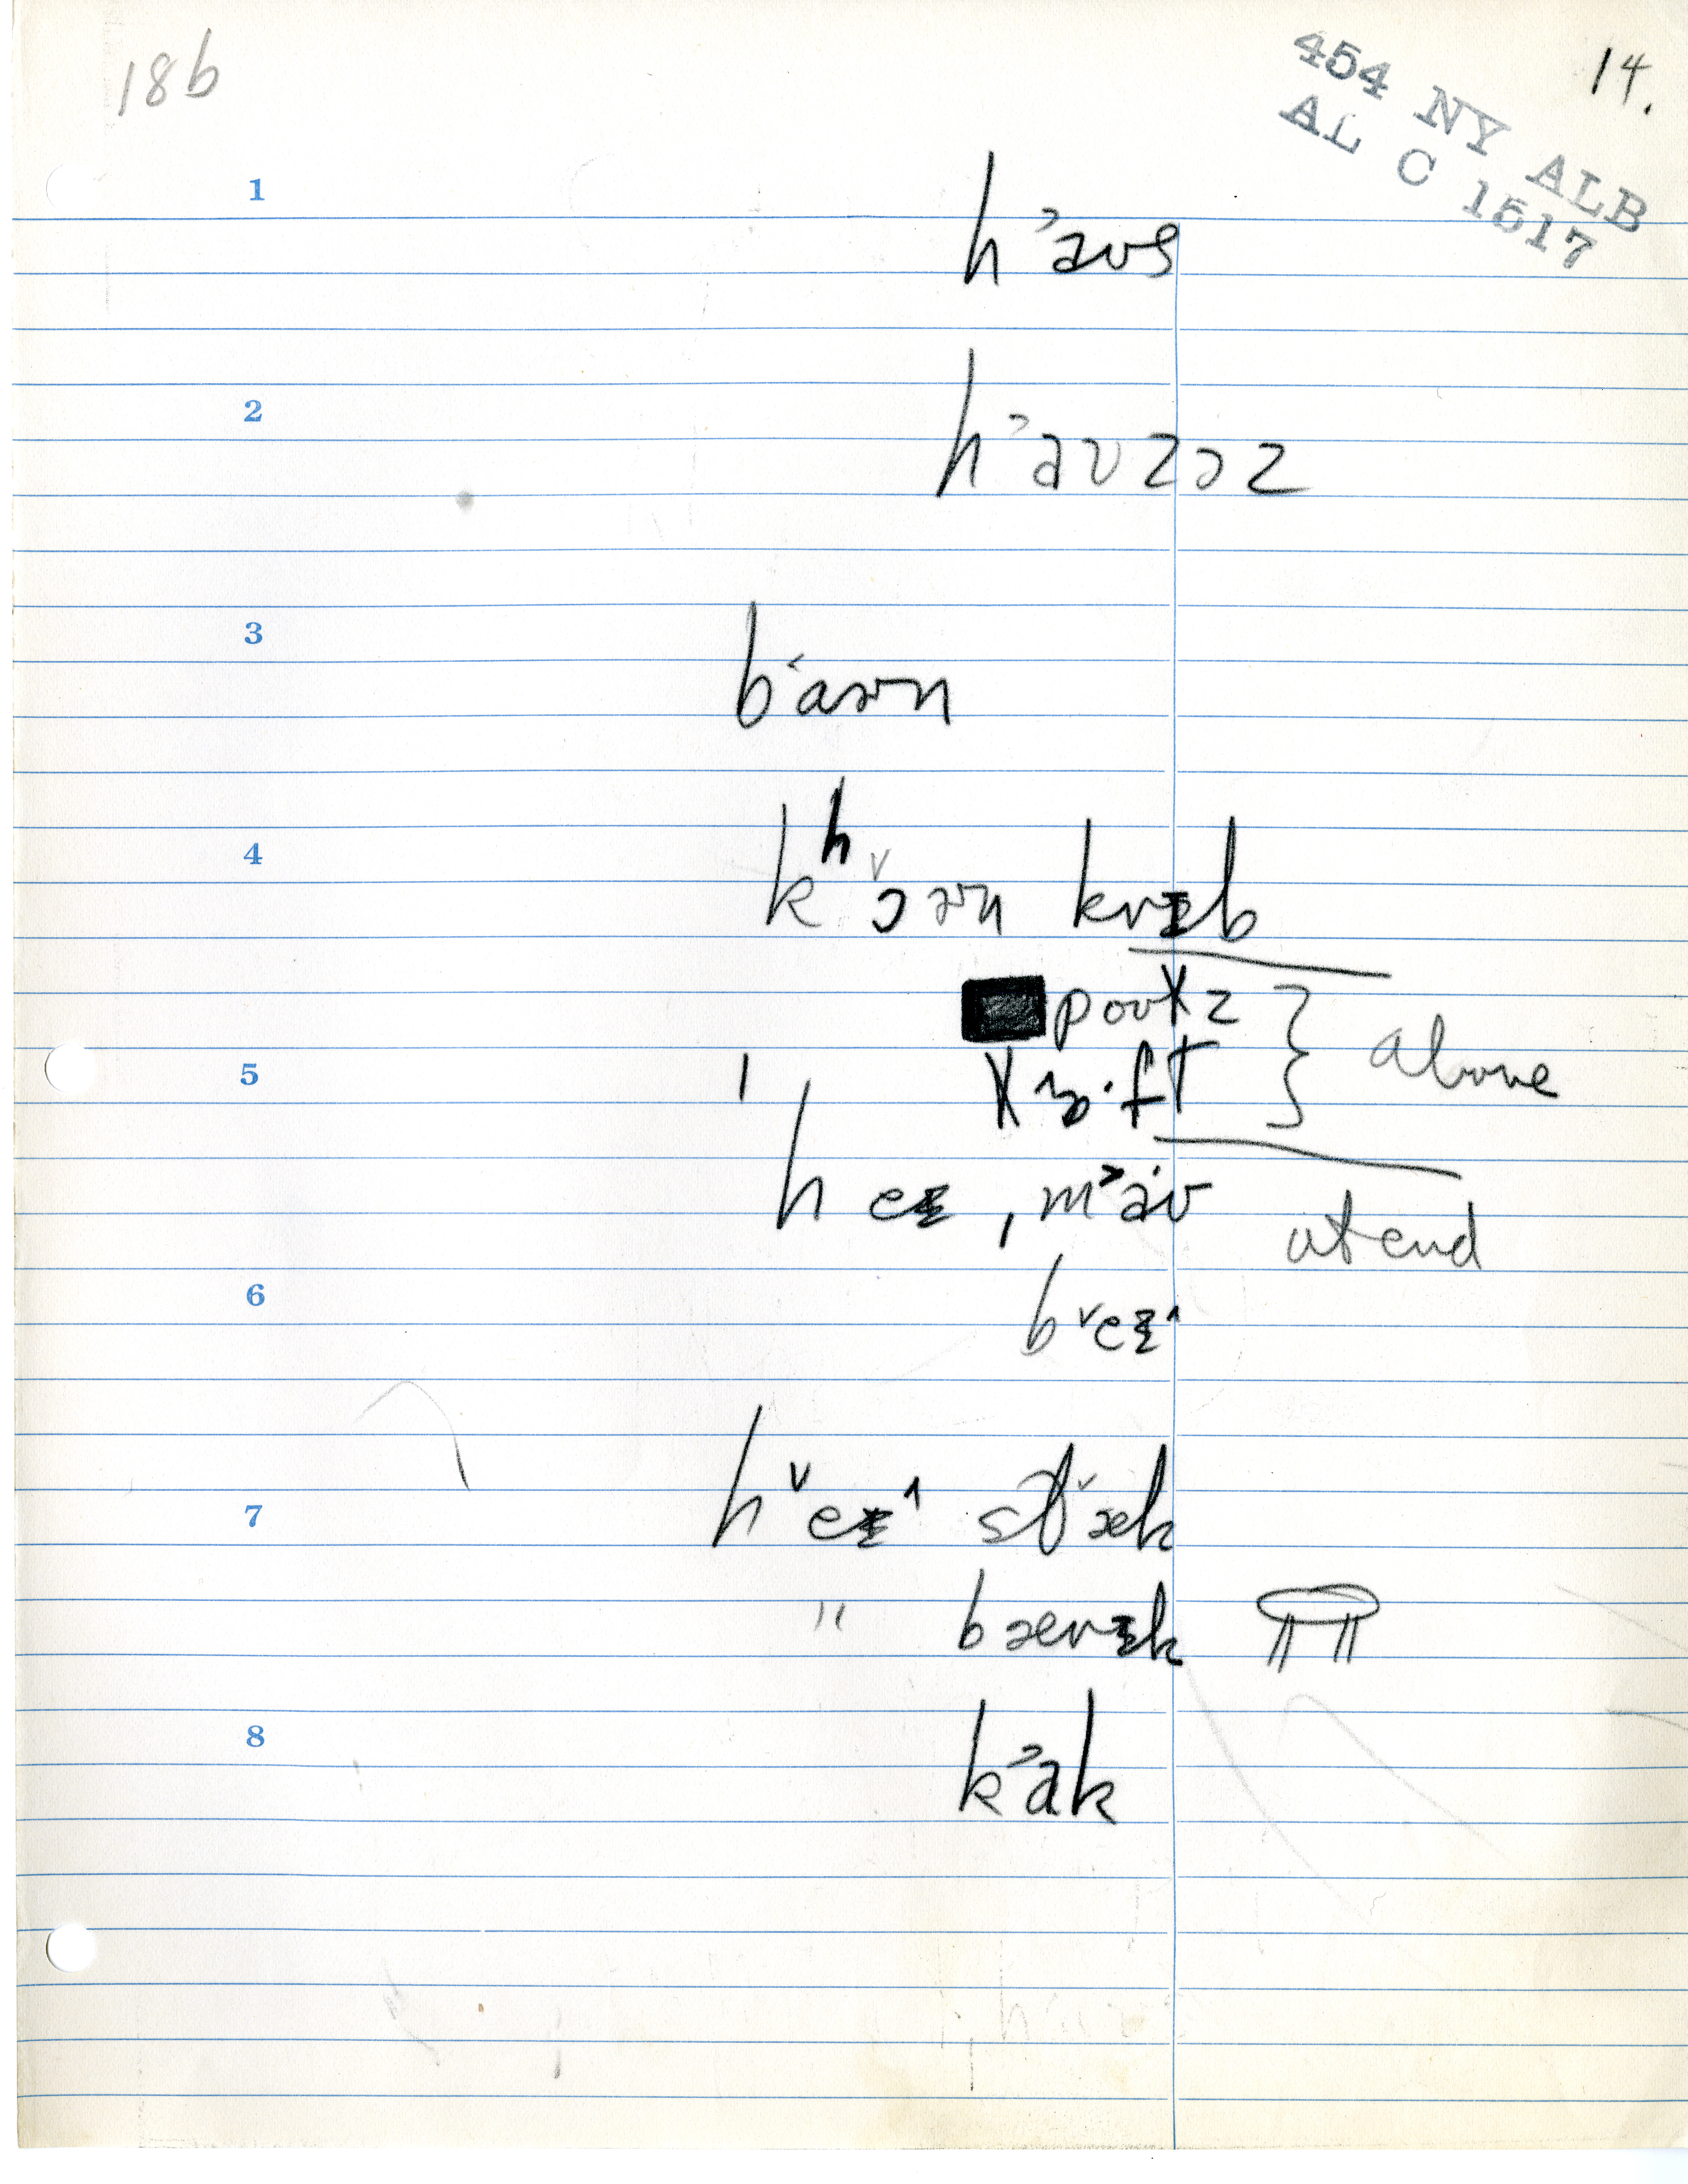 18b
14.
454 NY ALB
AL C 1517
1
h˃aʊs
2
h˃aʊzəz
3
b˂aɚn
4
kʰ˅ɔɚn krɪb
poʊlz
lɔ·ft } above
5
ˈheɪ ˌm˃aʊ at end
6
b˅eɪ˄
7
h˅eɪ˄ st˅æk
" bærɪk
8
k˃ak